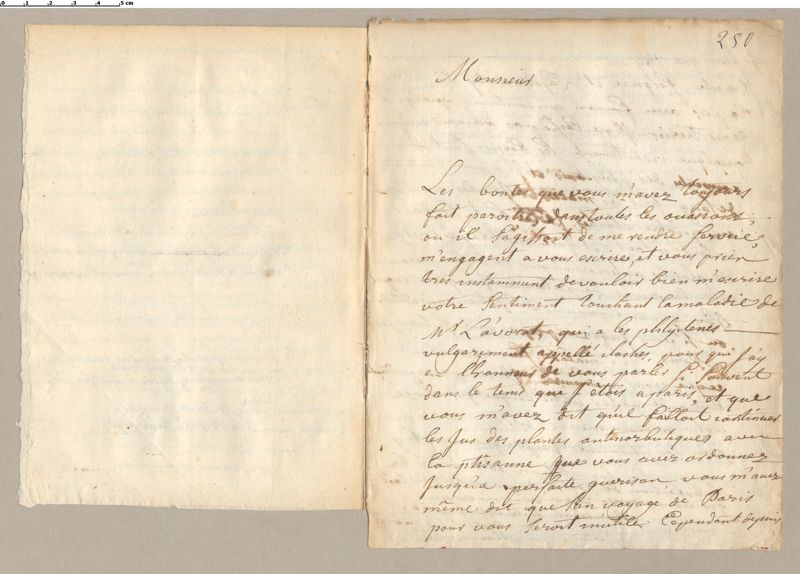 0 1 2 3 4 5 cm
250
Monsieur
Les bontes que vous m'avez toujours
fait paroitre, dans toutes les occasions,
ou il s'agissoit de me rendre service,
m'engagent a vous escrire, et vous prier
tres instamment de vouloir bien m'escrire
votre sentiment touchant la maladie de
Mr L'avocat, qui a les phlyctenes
vulgairement appellé cloches, pour qui j'ay
eu l'honneur de vous parler si souvent
dans le tems que j'étois a paris, et que
vous m'avez dit qu'il falloit continuer
les jus des plantes antiscorbutiques avec
la ptisanne que vous avez ordonnez
jusqu'a parfaite guerison, vous m'avez
même dit que son voyage de Paris
pour vous seroit inutile. Cependant depuis